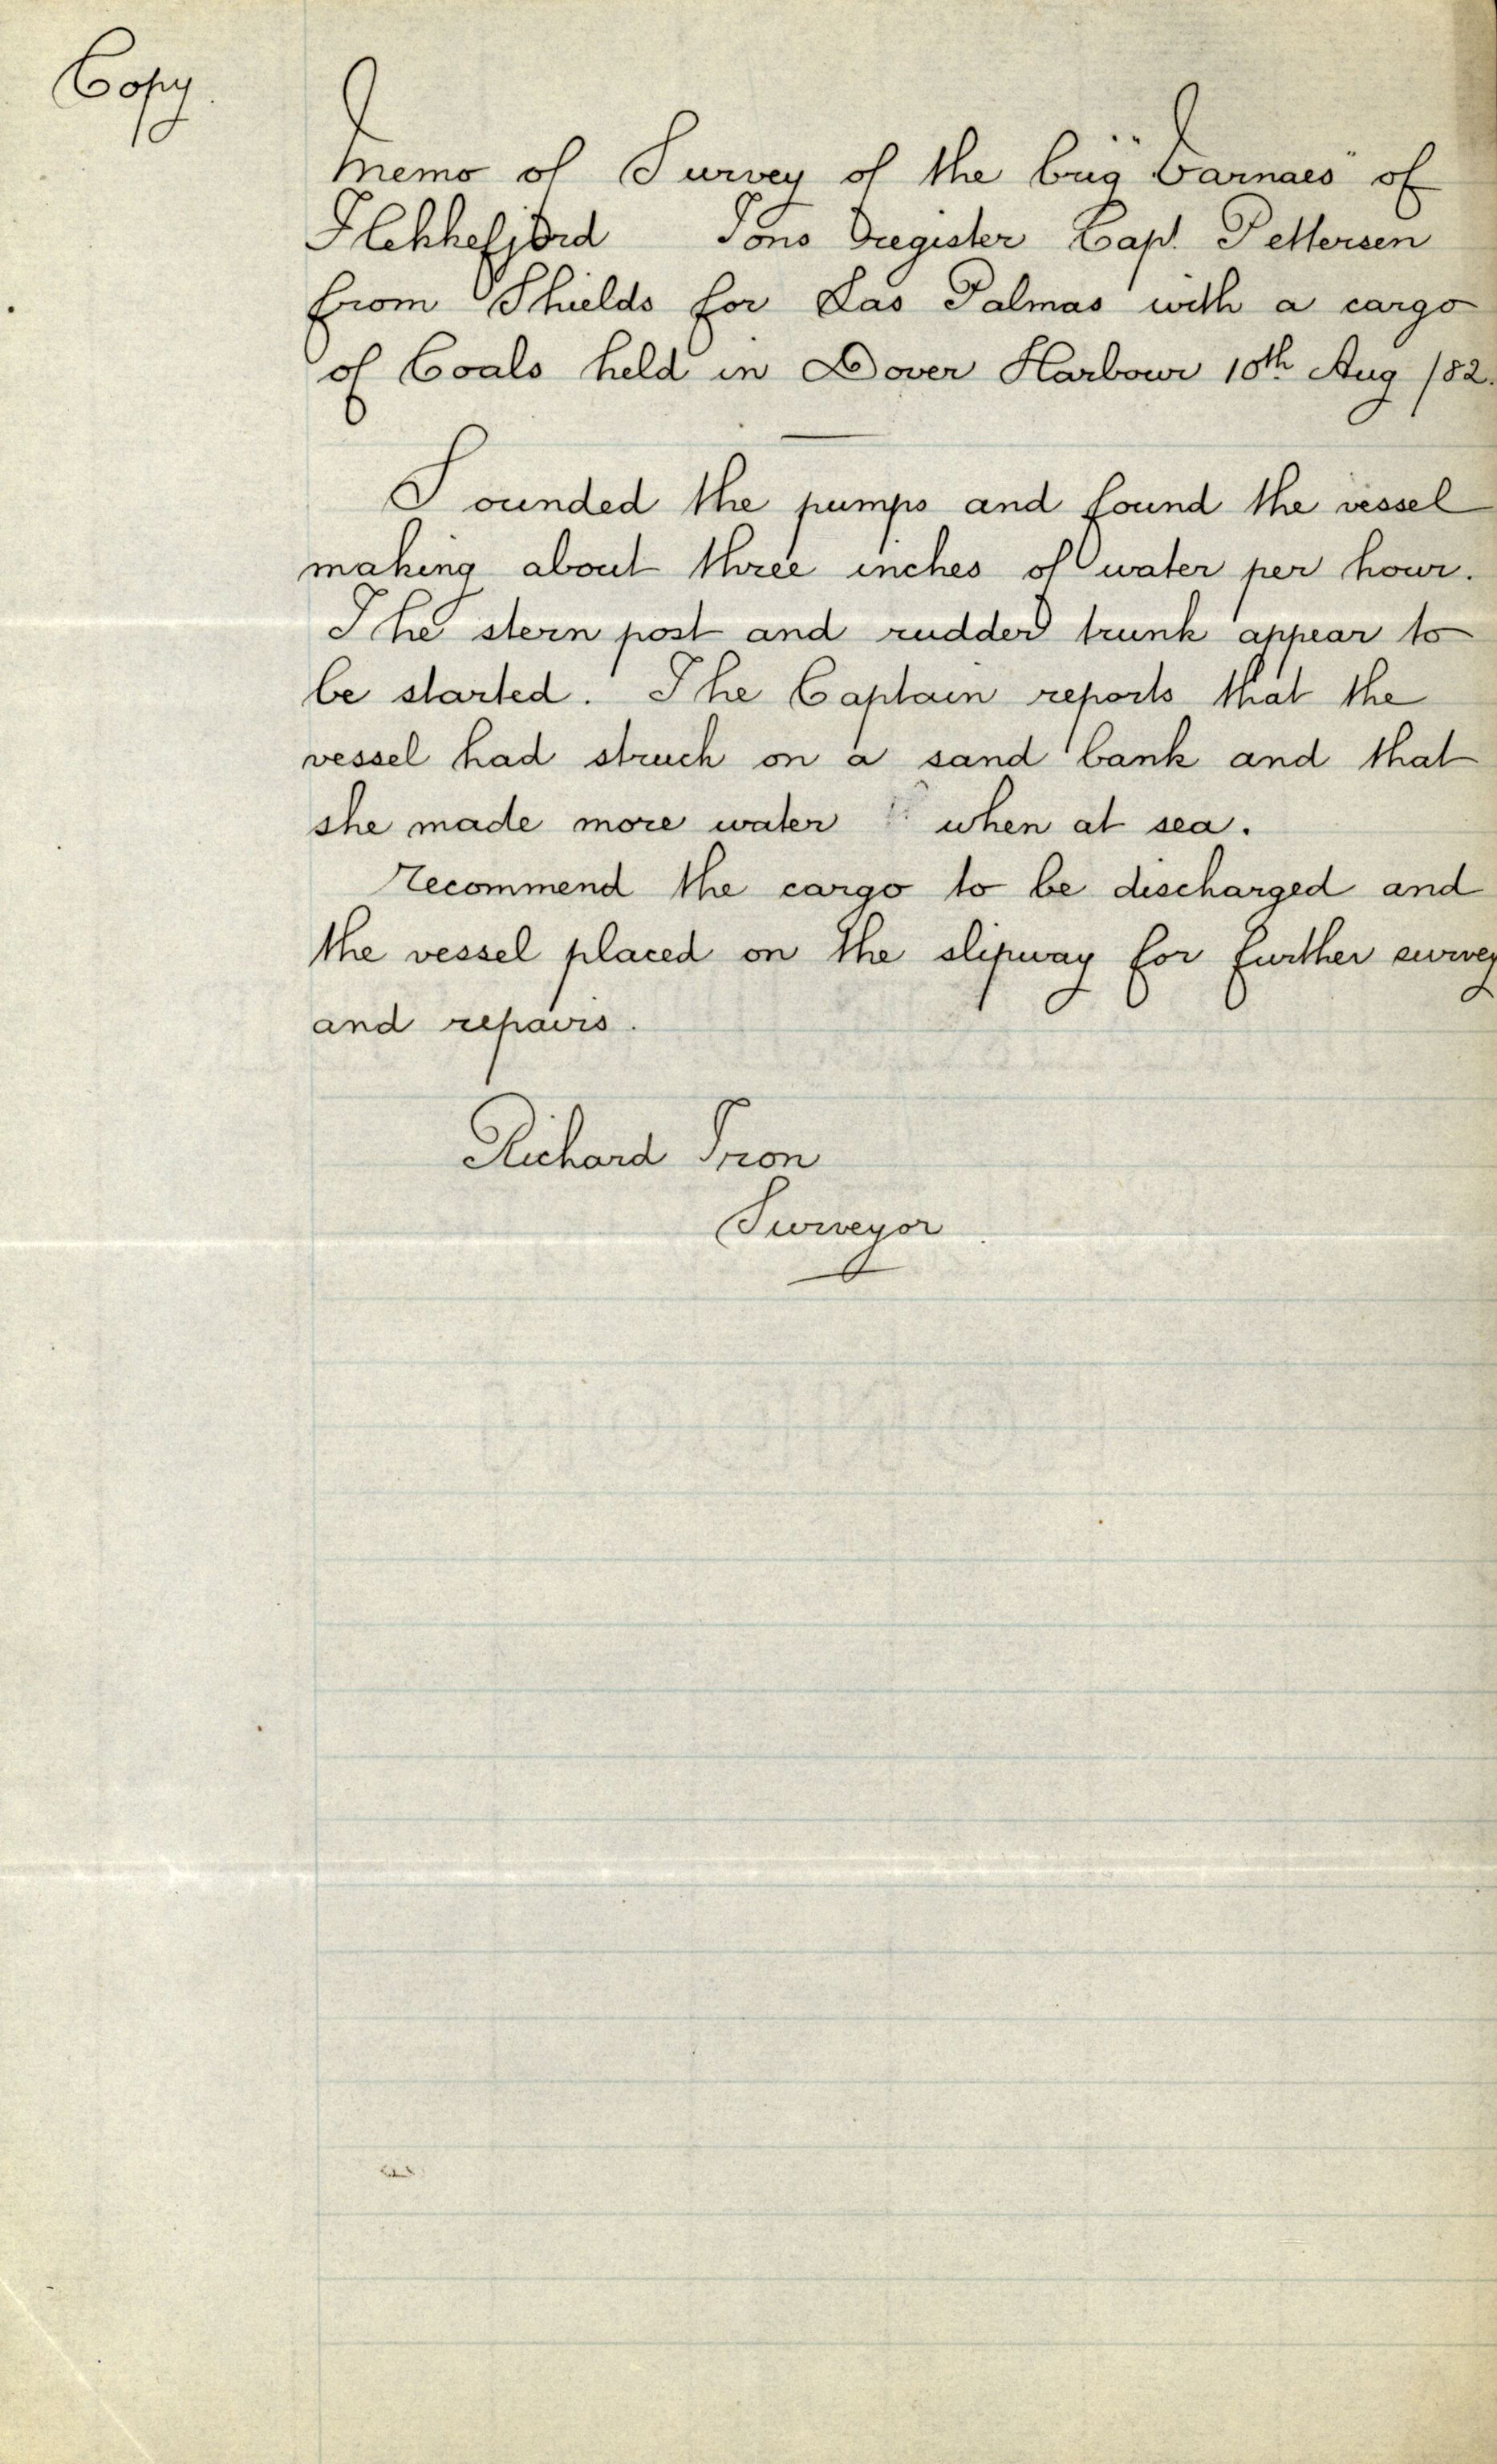 Copy.
Memo of Survey of the brig "Varnaes" of
Flekkefjord Tons Register Capt. Pettersen
from Shields for Las Palmas with a cargo
of Coals held in Dover Harbour 10th Aug /82.
Sounded the pumps and found the vessel
making about three inches of water per hour.
The stern post and rudder trunk appear to
be started. The Captain reports that the
vessel had struck on a sand bank and that
she made more water when at sea.
Recommend the cargo to be discharged and
the vessel placed on the slipway for further survey
and repairs.
Richard Iron
Surveyor.